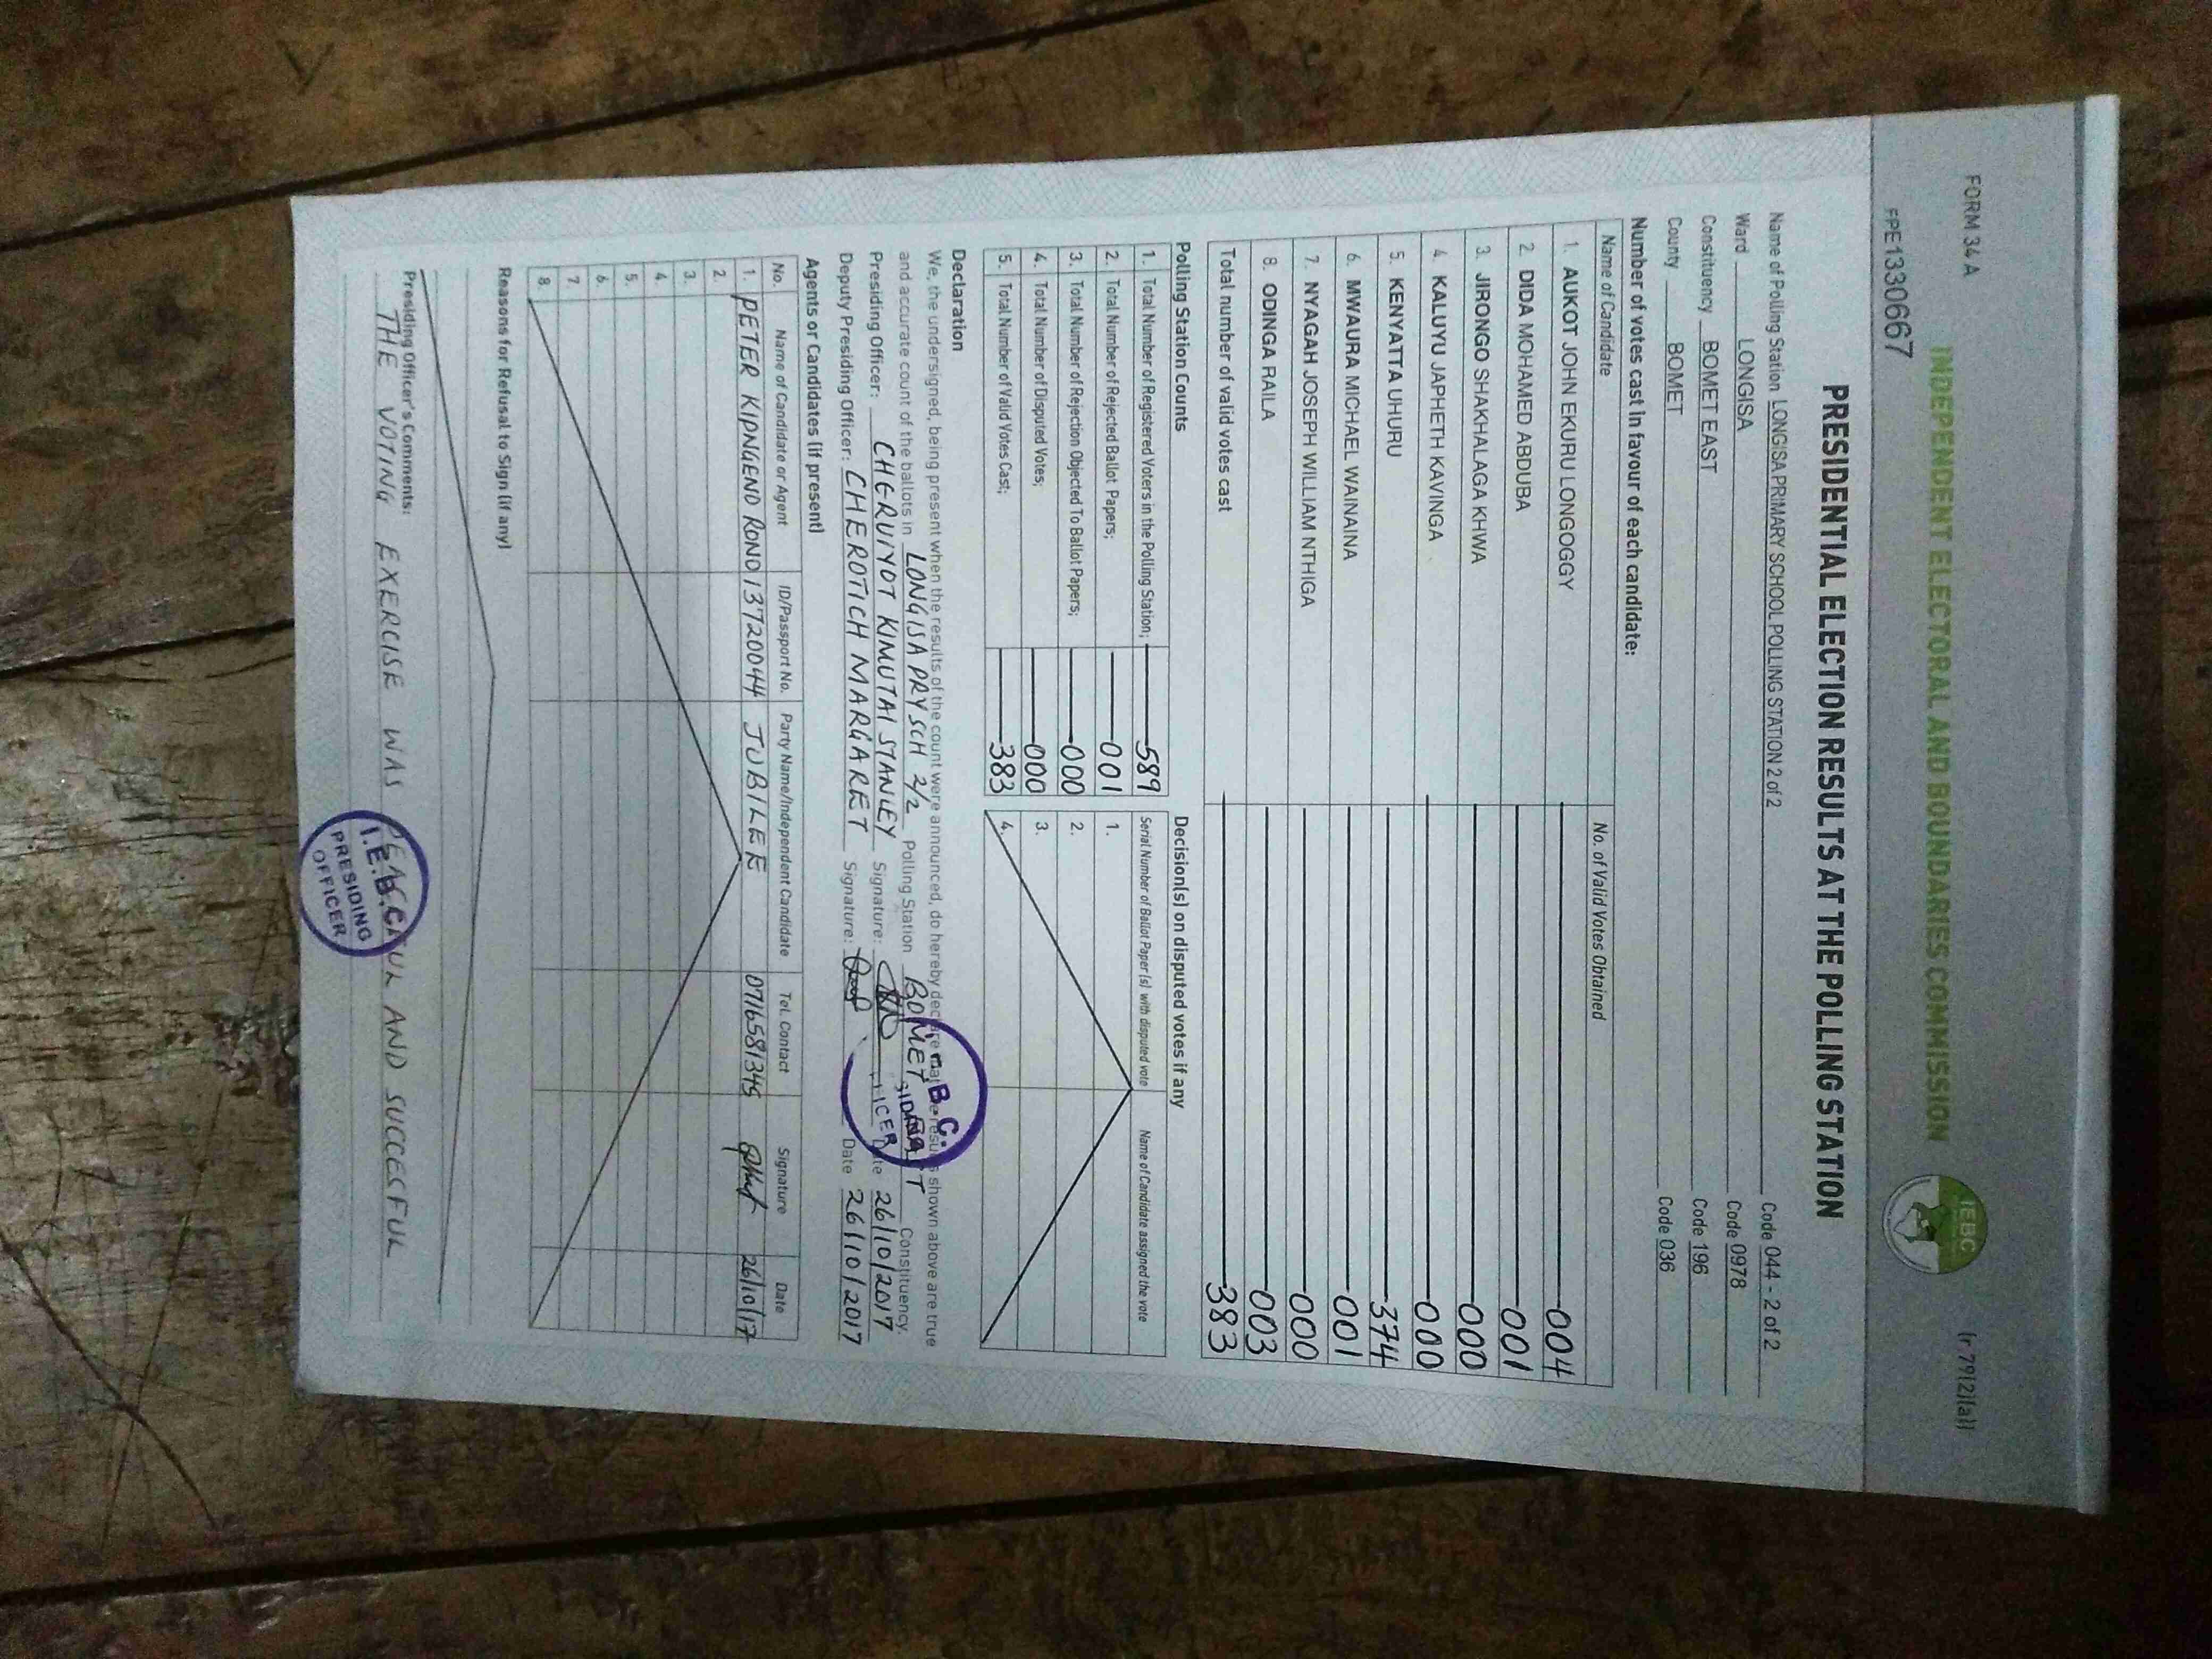 FORM 34 A
(r 79(2)(a))
INDEPENDENT ELECTORAL AND BOUNDARIES COMMISSION
IEBC
FPE1330667
PRESIDENTIAL ELECTION RESULTS AT THE POLLING STATION
Name of Polling Station LONGISA PRIMARY SCHOOL POLLING STATION 2 of 2 Code 044 - 2 of 2
Ward LONGISA Code 0978
Constituency BOMET EAST Code 196
County BOMET Code 036
Number of votes cast in favour of each candidate:
Name of Candidate No. of Valid Votes Obtained
1. AUKOT JOHN EKURU LONGOGGY 004
2. DIDA MOHAMED ABDUBA 001
3. JIRONGO SHAKHALAGA KHWA 000
4. KALUYU JAPHETH KAVINGA 000
5. KENYATTA UHURU 374
6. MWAURA MICHAEL WAINAINA 001
7. NYAGAH JOSEPH WILLIAM NTHIGA 000
8. ODINGA RAILA 003
Total number of valid votes cast 383
Polling Station Counts
1. Total Number of Registered Voters in the Polling Station; 589
2. Total Number of Rejected Ballot Papers; 001
3. Total Number of Rejection Objected To Ballot Papers; 000
4. Total Number of Disputed Votes; 000
5. Total Number of Valid Votes Cast; 383
Decision(s) on disputed votes if any
Serial Number of Ballot Paper(s) with disputed vote Name of Candidate assigned the vote
1.
2.
3.
4.
Declaration
We, the undersigned, being present when the results of the count were announced, do hereby declare that the results shown above are true
and accurate count of the ballots in LONGISA PRY SCH 2/2 Polling Station BOMET EAST Constituency.
Presiding Officer: CHERUIYOT KIMUTAI STANLEY Signature: Date 26/10/2017
Deputy Presiding Officer: CHEROTICH MARGARET Signature: Date 26/10/2017
Agents or Candidates (if present)
No. Name of Candidate or Agent ID/Passport No. Party Name/Independent Candidate Tel. Contact Signature Date
1. PETER KIPNGENO RONO 13720044 JUBILEE 0716581345 26/10/17
2.
3.
4.
5.
6.
7.
8.
Reasons for Refusal to Sign (if any)
Presiding Officer's Comments:
THE VOTING EXERCISE WAS PEACEFUL AND SUCCESFUL
I.E.B.C.
PRESIDING
OFFICER